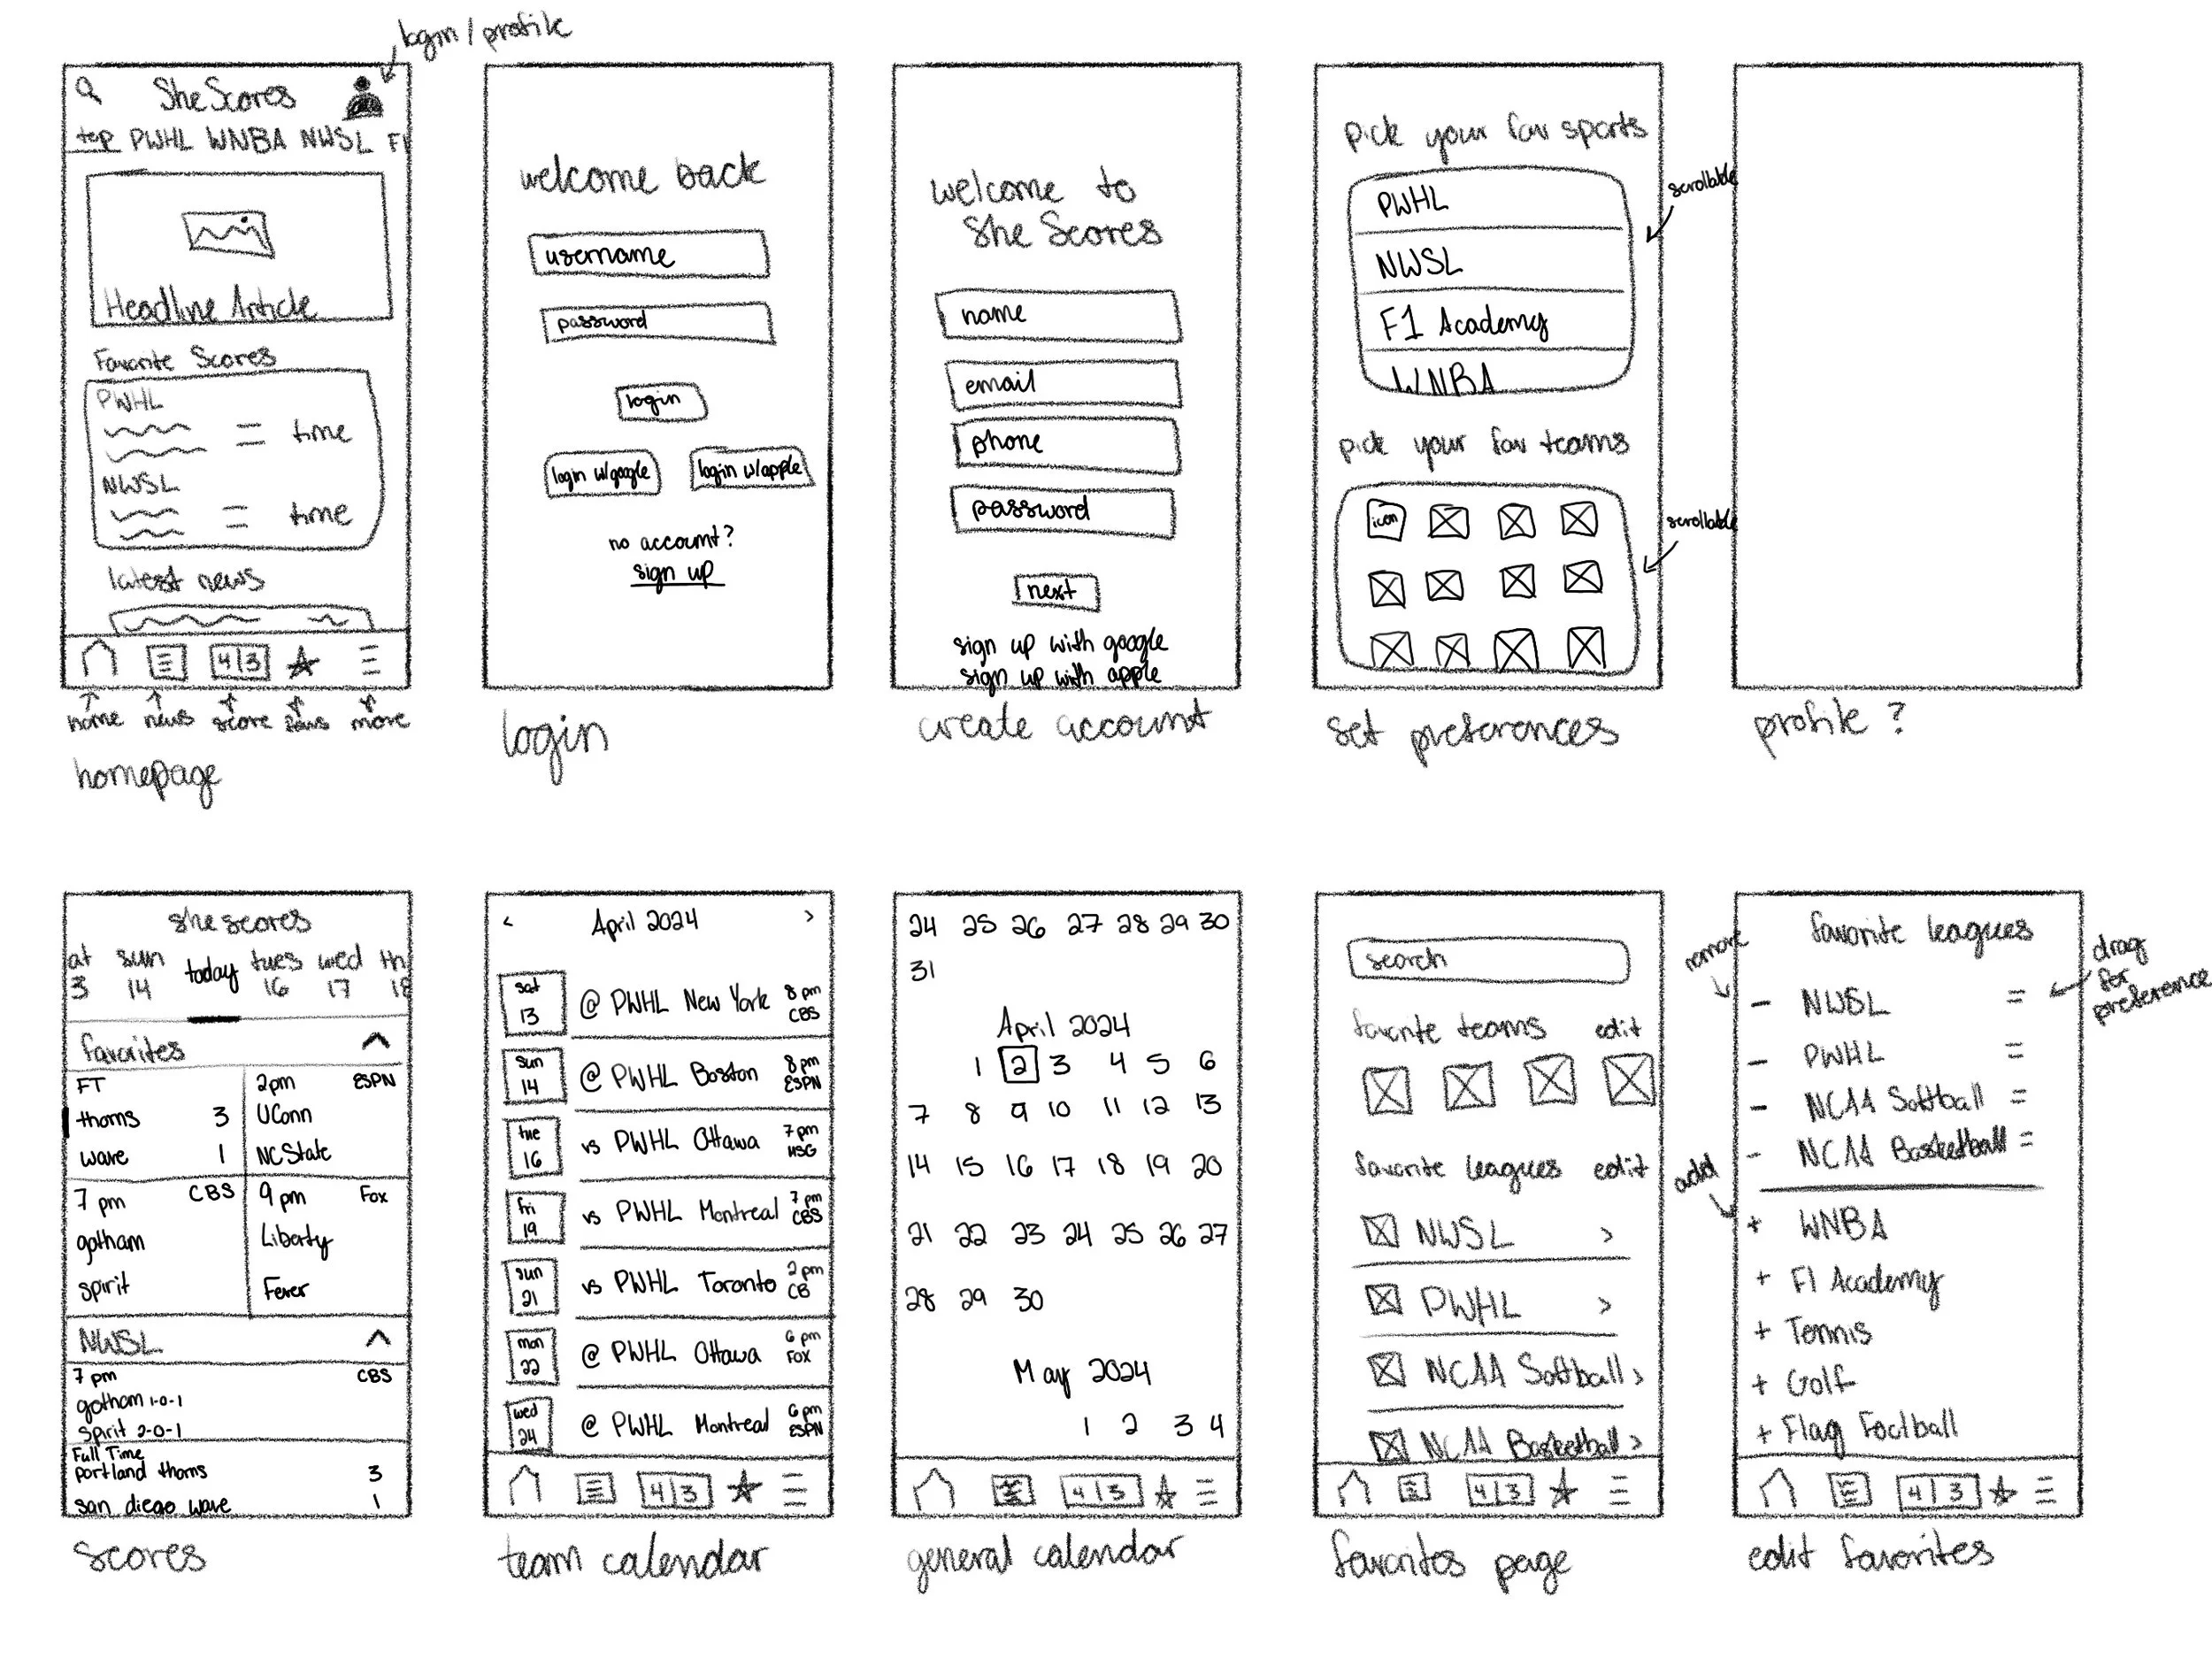 login / profile
She Scores
top PWHL WNBA NWSL F1
Headline Article
Favorite Scores
PWHL
time
NWSL
time
latest news
4 3
home news score favs more
homepage
welcome back
username
password
login
login w/google login w/apple
no account?
sign up
login
welcome to
She Scores
name
email
phone
password
next
sign up with google
sign up with apple
create account
pick your fav sports
PWHL
NWSL
F1 Academy
WNBA
scrollable
pick your fav teams
icon
scrollable
set preferences
profile ?
she scores
at sun today tues wed th
3 14 16 17 18
favorites
FT
thorns 3
wave 1
2pm ESPN
UConn
NC State
7 pm CBS
gotham
spirit
9 pm Fox
Liberty
Fever
NWSL
7 pm CBS
gotham 1-0-1
spirit 2-0-1
Full Time
portland thorns 3
san diego wave 1
scores
< April 2024 >
sat 13 @ PWHL New York 8 pm CBS
sun 14 @ PWHL Boston 8pm ESPN
tue 16 vs PWHL Ottawa 7pm
fri 19 vs PWHL Montreal 7 pm CBS
sun 21 vs PWHL Toronto 2pm CB
mon 22 @ PWHL Ottawa 6 pm FOX
wed 24 @ PWHL Montreal 6pm ESPN
4 3
team calendar
24 25 26 27 28 29 30
31
April 2024
1 2 3 4 5 6
7 8 9 10 11 12 13
14 15 16 17 18 19 20
21 22 23 24 25 26 27
28 29 30
May 2024
1 2 3 4
4 3
general calendar
search
favorite teams edit
favorite leagues edit
NWSL >
PWHL >
NCAA Softball >
NCAA Basketball >
4 3
favorites page
favorite leagues
remove
drag for preference
- NWSL =
- PWHL =
- NCAA Softball =
- NCAA Basketball =
add
+ WNBA
+ F1 Academy
+ Tennis
+ Golf
+ Flag Football
4 3
edit favorites